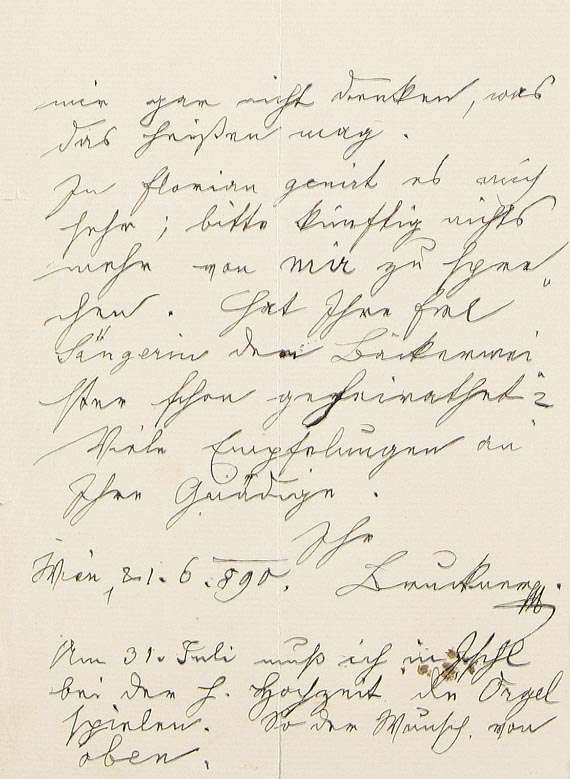 mir gar nicht denken, was
das heißen mag.
In Florian genirt es mich
sehr; bitte künftig nichts
mehr von mir zu spre
chen. Hat Ihre Frl
Sängerin den Bäckermei
ster schon geheirathet?
Viele Empfelungen an
Ihre Gnädige.
Ihr
Wien, 21. 6. 890. Bruckner
Am 31. Juli muß ich in Ischl
bei der h. Hochzeit die Orgel
spielen. So der Wunsch von
oben.